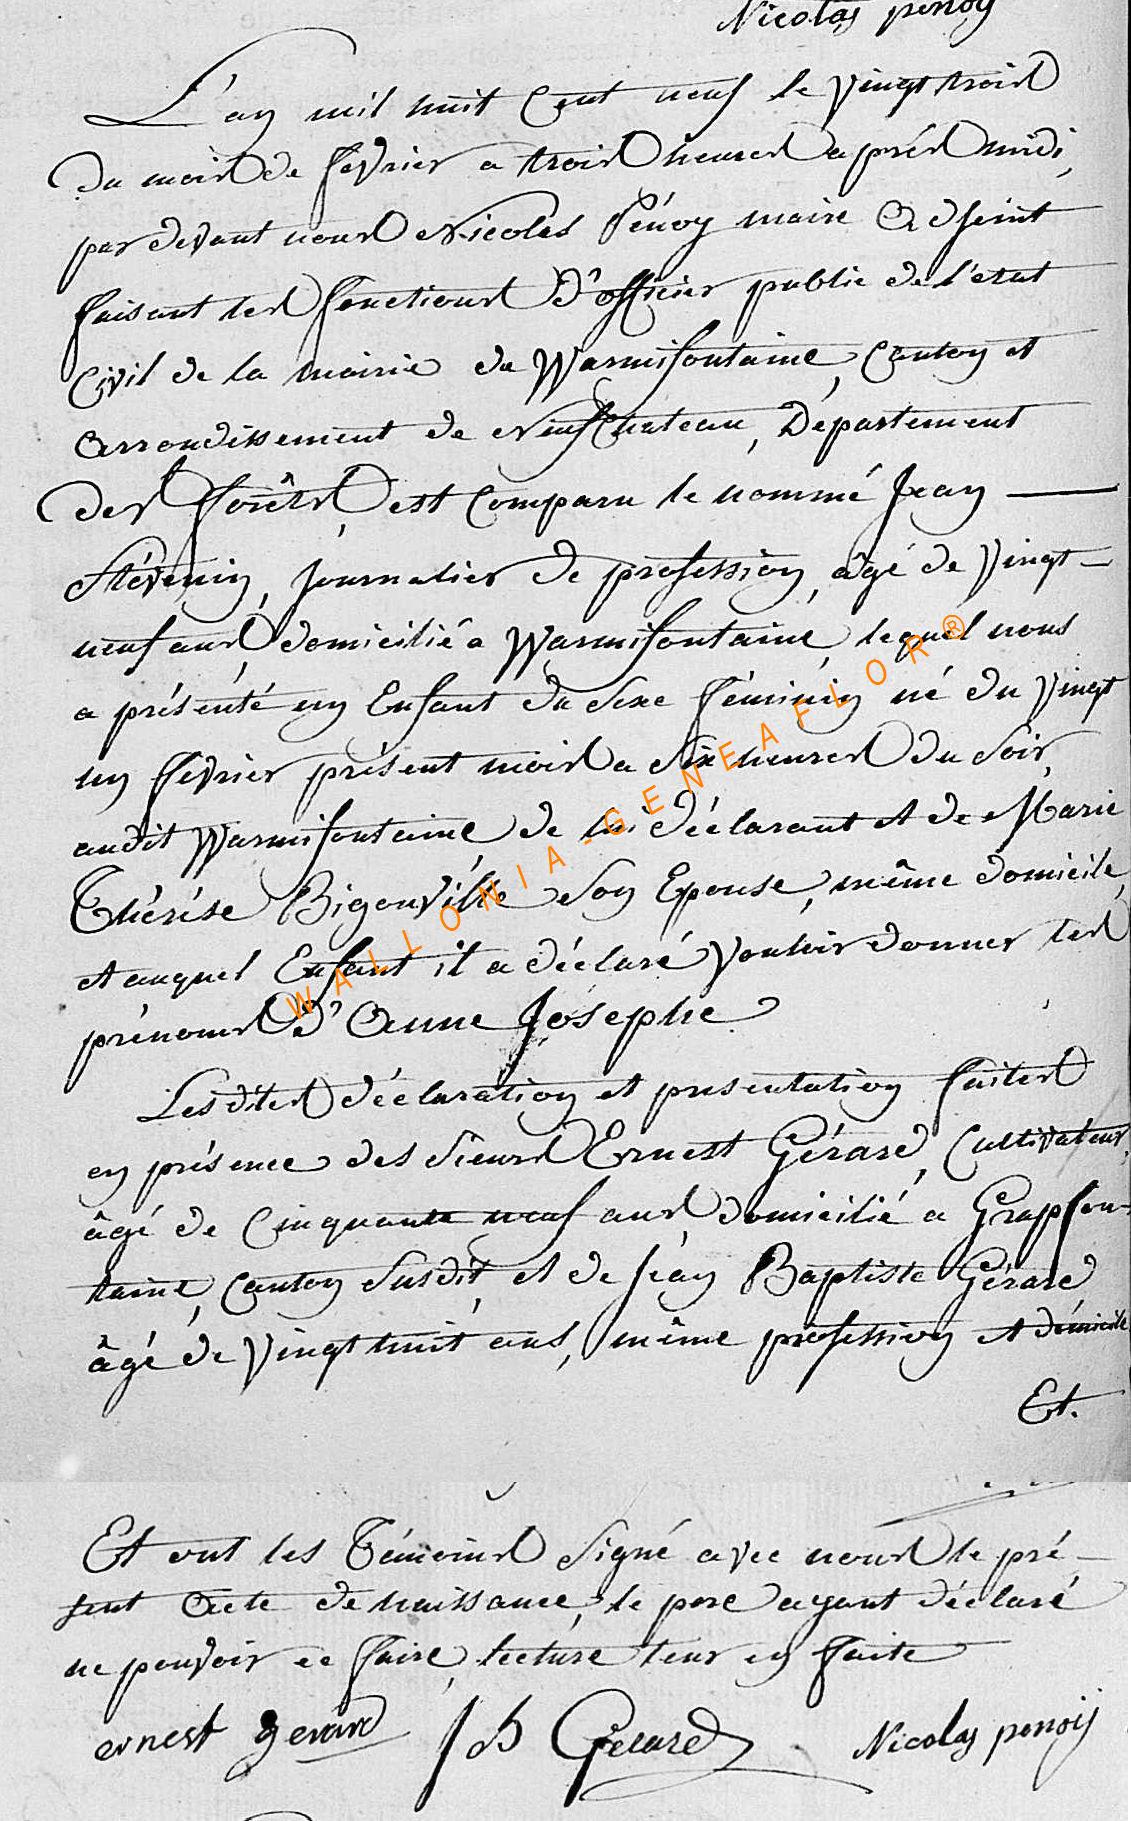 Nicolas penoÿ
L'an mil huit Cent neuf le Vingt trois
du mois de fevrier a trois heures après midi,
par devant nous Nicolas Pénoy maire Adjoint
faisant les fonctions d'officier public de l'etat
Civil de la mairie de Warmifontaine, Canton et
Arrondissement de Neufchateau, Département
des forêts, est Comparu le nommé Jean —
Stévenin, Journalier de profession, âgé de Vingt-
neuf ans, domicilié a Warmifontaine, lequel nous
a présenté un Enfant du Sexe féminin né du Vingt
un fevrier présent mois a Six heures du Soir,
audit Warmifontaine de lui déclarant et de Marie
Thérése Bigonville Son Epouse, même domicile,
et auquel Enfant il a déclaré Vouloir donner les
prénoms d'Anne Josephe
Lesdites déclaration et presentation faites
en présence des Sieurs Ernest Gérard, Cultivateur,
âgé de Cinquante neuf ans, domicilié a Grapfon-
taine, Canton Susdit, et de Jean Baptiste Gérard
âgé de Vingt huit ans, même profession et domicile
Et.
Et ont les Témoins Signé avec nous le pré-
sent Acte de naissance, le pere ayant déclaré
ne pouvoir ce faire, lecture leur en faite
ernest gerard Jb Gerard Nicolas penoÿ
WALLONIA-GENEAFLOR®